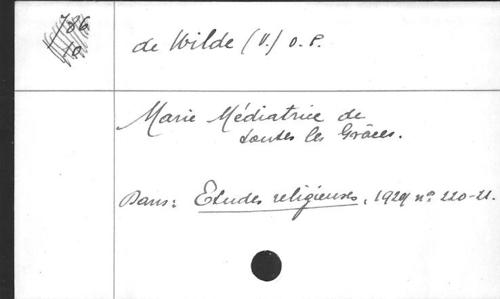 786
10
de Wilde (V.) O. P.
Marie Médiatrice de
toutes les Grâces.
Dans: Etudes religieuses, 1929 nº 220-21.